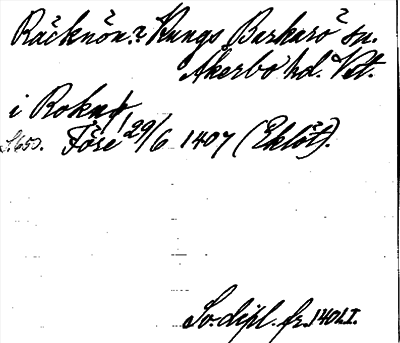 Räcknön.? Kungs Barkarö sn.
Åkerbo hd. Vstm.
i Rokno
S. 650. Före 29/6 1407 (Eklöt).
Sv. dipl. fr. 1401. I.